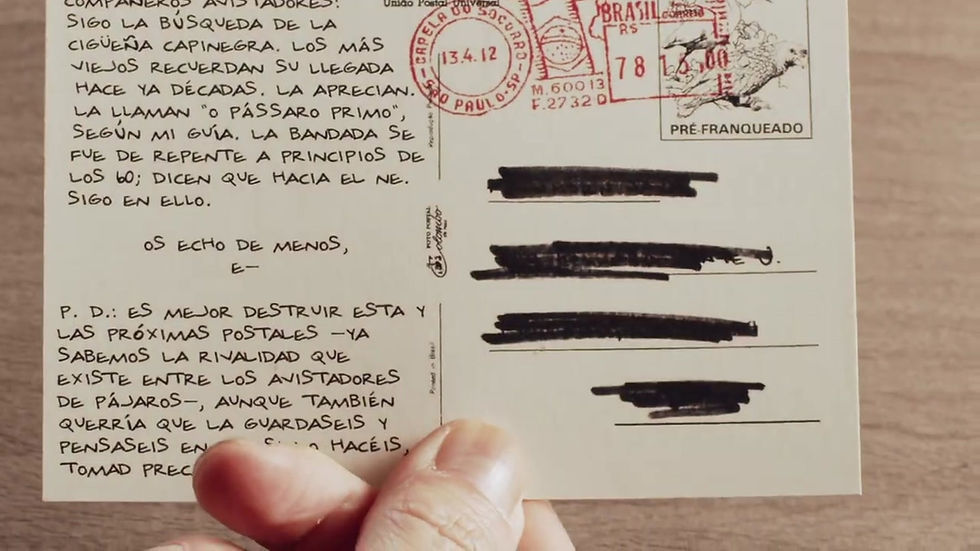 COMPAÑEROS AVISTADORES:
SIGO LA BÚSQUEDA DE LA
CIGÜEÑA CAPINEGRA. LOS MÁS
VIEJOS RECUERDAN SU LLEGADA
HACE YA DÉCADAS. LA APRECIAN.
LA LLAMAN "O PÁSSARO PRIMO",
SEGÚN MI GUÍA. LA BANDADA SE
FUE DE REPENTE A PRINCIPIOS DE
LOS 60; DICEN QUE HACIA EL NE.
SIGO EN ELLO.
OS ECHO DE MENOS,
E—
P. D.: ES MEJOR DESTRUIR ESTA Y
LAS PRÓXIMAS POSTALES —YA
SABEMOS LA RIVALIDAD QUE
EXISTE ENTRE LOS AVISTADORES
DE PÁJAROS—, AUNQUE TAMBIÉN
QUERRÍA QUE LA GUARDASEIS Y
PENSASEIS EN HACÉIS,
TOMAD
União Postal Universal
CAPELA DO SOCORRO
13.4.12
SÃO PAULO-SP
M.60013
F.2732D
BRASIL CORREIO
R$
PRÉ-FRANQUEADO
FOTO POSTAL
Printed in Brasil